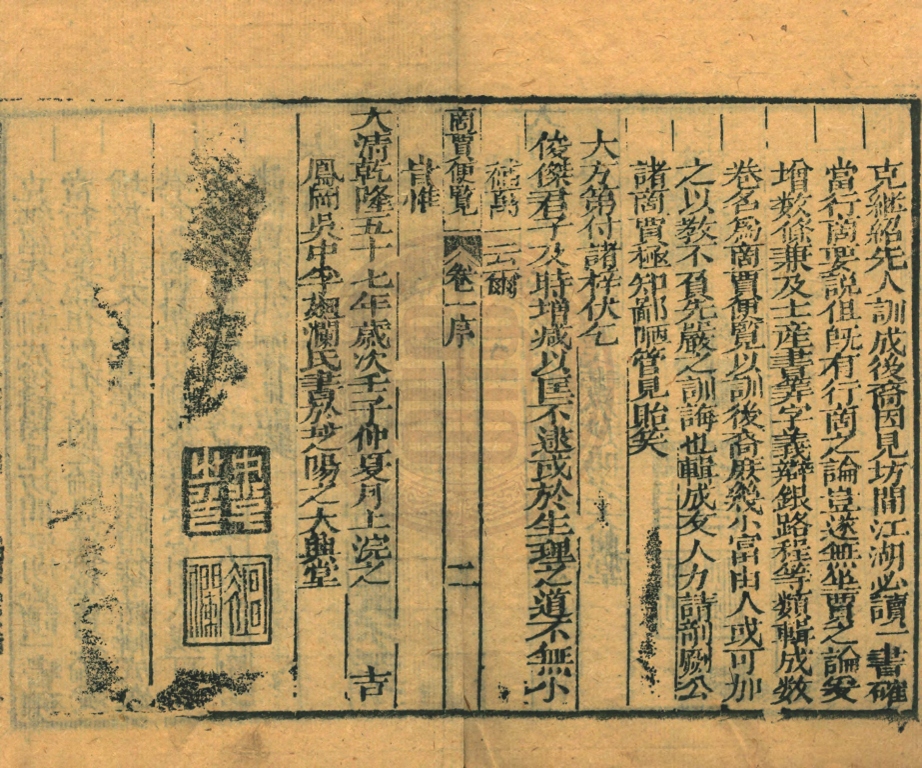 克繼紹先人訓成後裔因見坊間江湖必讀一書確
當行商要説但既有行商之論豈遂無坐賈之論爰
增数條兼及土産書筭字義辯銀路程等類輯成数
巻名為商賈便覧以訓後裔庶幾小富由人或可加
之以教不負先嚴之訓誨也輯成友人力請剞劂公
諸商賈極知鄙陋管見貽笑
大方第付諸梓伏乞
俊傑君子及時增藏以匡不逮或於生理之道不無小
補萬一云爾
商賈便覧 卷一序 二
旹惟
大清乾隆五十七年歲次壬子仲夏月上浣之 吉
鳳岡吳中孚
瀾氏書於
陽之大興堂